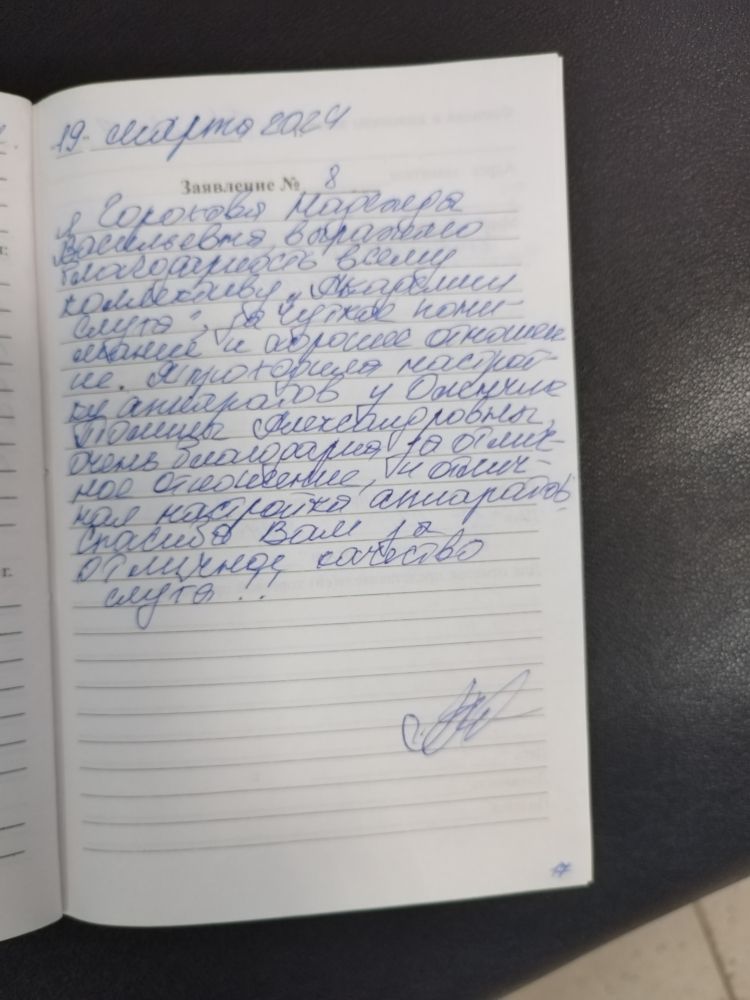 19 марта 2024
Заявление № 8
Я Горохова Надежда
Васильевна, выражаю
благодарность всему
коллективу „Академии
слуха", за чуткое пони-
мание и хорошее отношен
ие. Я проходила настрой-
ку аппаратов у
Александровны,
очень благодарна за отлич-
ное отношение, и отлич-
ная настройка аппаратов
спасибо Вам за
отличное качество
слуха!!
17